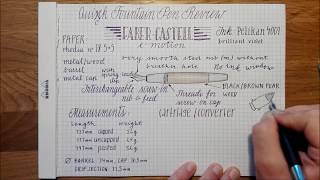 Quick Fountain Pen Review
PAPER
rhodia nr 18 5×5
FABER-CASTELL
e-motion
Ink Pelikan 4001
brilliant violet
metal/wood
barrel with spring loaded clip
metal cap
very smooth steel nib (m) without
breather hole
No ink window
BLACK/BROWN PEAR WOOD
Interchangeable screw-in nib & feed
Threads for screw on cap
Measurements:
Cartridge/converter
Length
weight
137mm capped
127mm uncapped
posted
Ø BARREL: 14mm, CAP: 16.5mm
GRIP SECTION: 11.5mm